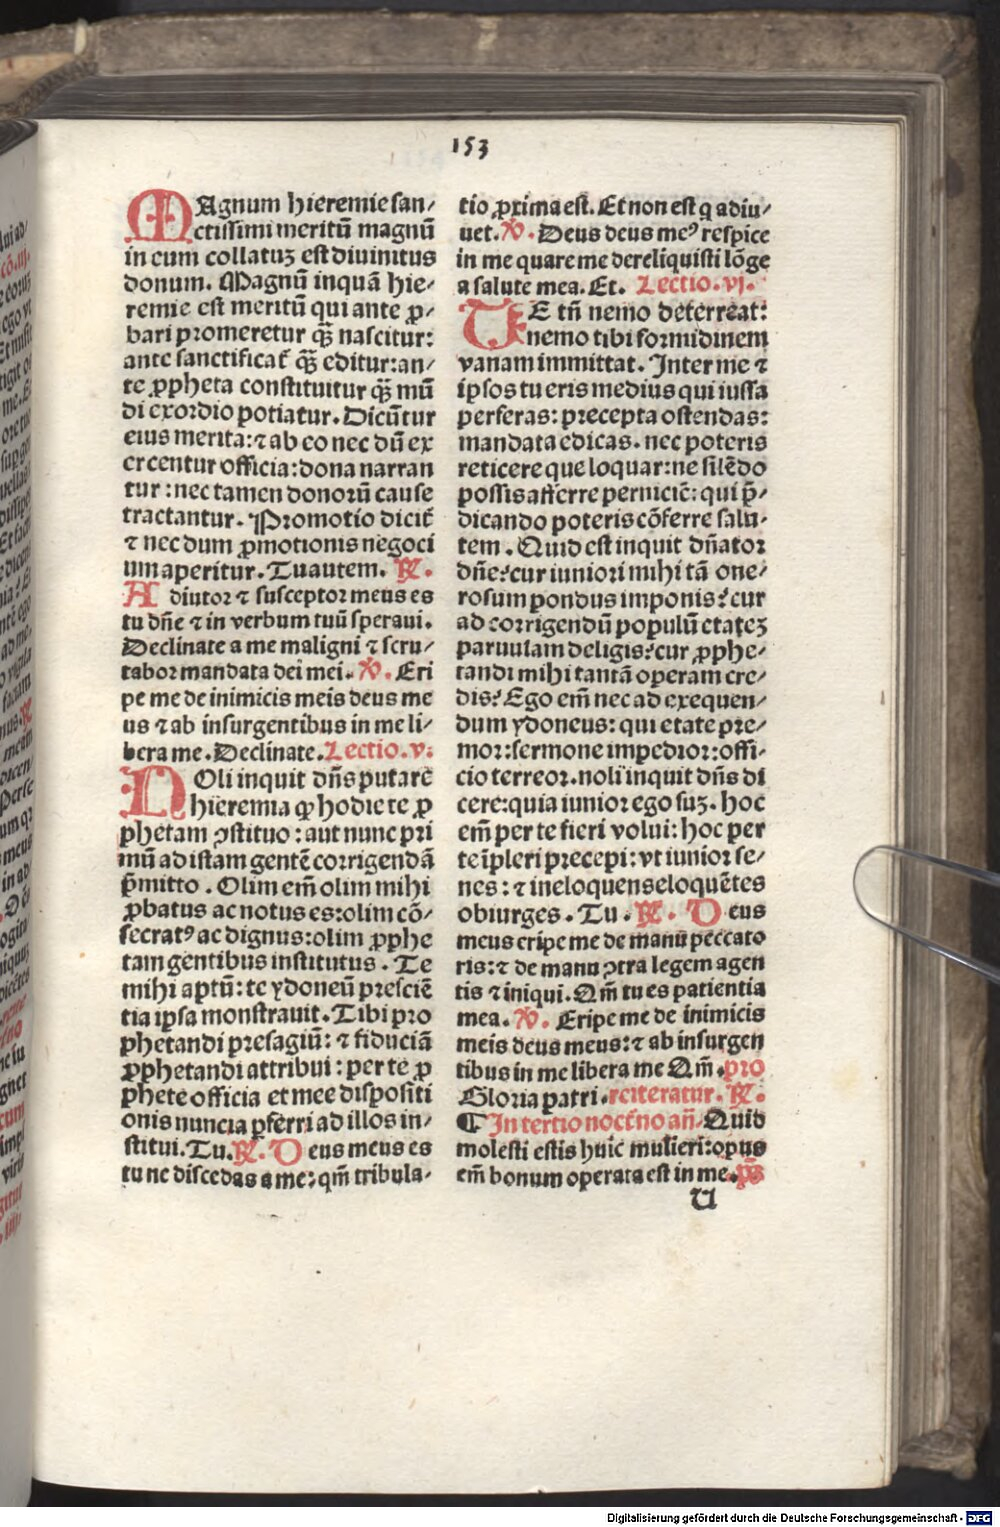 153
MAgnum hieremie san⸗
ctissimi meritū magnū
in eum collatuʒ est diuinitus
donum. Magnū inquā hie⸗
remie est meritū qui ante ꝓ⸗
bari promeretur qꝫ̄ nascitur:
ante sanctificat̄ qꝫ̄ editur:an⸗
te ꝓpheta constituitur qꝫ̄ mū
di exordio potiatur. Dicūtur
eius merita:⁊ ab eo nec dū ex
ercentur officia:dona narran
tur:nec tamen donorū cause
tractantur. Promotio dicit̄
⁊ nec dum ꝓmotionis negoci
um aperitur. Tu autem. ℟.
Adiutor ⁊ susceptor meus es
tu dn̄e ⁊ in verbum tuū speraui.
Declinate a me maligni ⁊ scru⸗
tabor mandata dei mei. ℣. Eri
pe me de inimicis meis deus me
us ⁊ ab insurgentibus in me li⸗
bera me. Declinate. Lectio.v.
NOli inquit dn̄s putare
hieremia ꝙ hodie te ꝓ
phetam ꝯstituo:aut nunc pri
mū ad istam gentē corrigendā
p̄mitto. Olim em̄ olim mihi
ꝓbatus ac notus es:olim cō⸗
secratꝰ ac dignus:olim ꝓphe
tam gentibus institutus. Te
mihi aptū:te ydoneū prescie
tia ipsa monstrauit. Tibi pro
phetandi presagiū:⁊ fiduciā
ꝓphetandi attribui:per te ꝓ
phete officia et mee dispositi
onis nuncia ꝑferri ad illos in⸗
stitui. Tu. ℟. Deus meus es
tu ne discedas a me:qm̄ tribula⸗
tio ꝓxima est. Et non est q̄ adiu⸗
uet. ℣. Deus deus meꝰ respice
in me quare me dereliquisti lōge
a salute mea. Et. Lectio.vj.
TE tn̄ nemo deterreat:
nemo tibi formidinem
vanam immittat. Inter me ⁊
ipsos tu eris medius qui iussa
perferas:precepta ostendas:
mandata edicas. nec poteris
reticere que loquar:ne silēdo
possis afferre perniciē:qui p̄⸗
dicando poteris cōferre salu⸗
tem. Quid est inquit dn̄ator
dn̄e?cur iuniori mihi tā one⸗
rosum pondus imponis?cur
ad corrigendū populū etateʒ
paruulam deligis?cur ꝓphe⸗
tandi mihi tantā operam cre⸗
dis?Ego em̄ nec ad exequen⸗
dum ydoneus:qui etate pre⸗
mor:sermone impedior:offi⸗
cio terreor.noli inquit dn̄s di
cere:quia iunior ego suʒ. hoc
em̄ per te fieri volui:hoc per
te īpleri precepi:vt iunior se⸗
nes:⁊ ineloquens eloquētes
obiurges. Tu. ℟. Deus
meus eripe me de manu peccato
ris:⁊ de manu ꝯtra legem agen
tis ⁊ iniqui. Qm̄ tu es patientia
mea. ℣. Eripe me de inimicis
meis deus meus:⁊ ab insurgen
tibus in me libera me Qm̄. pro
Gloria patri. reiteratur. ℟.
¶ In tertio noct̄no an̄. Quid
molesti estis huic mulieri:opus
em̄ bonum operata est in me. p̄s
U
Digitalisierung gefördert durch die Deutsche Forschungsgemeinschaft - DFG